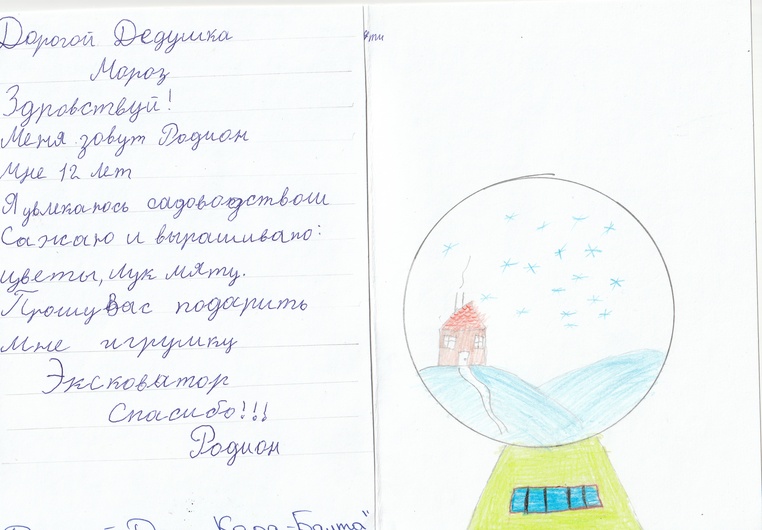 Дорогой Дедушка
Мороз
Здравствуй!
Меня зовут Родион
Мне 12 лет
Я увлекаюсь садоводством
Сажаю и выращиваю:
цветы, лук мяту.
Прошу Вас подарить
мне игрушку
Эксковатор
Спасибо!!!
Родион
Кара-Балта"